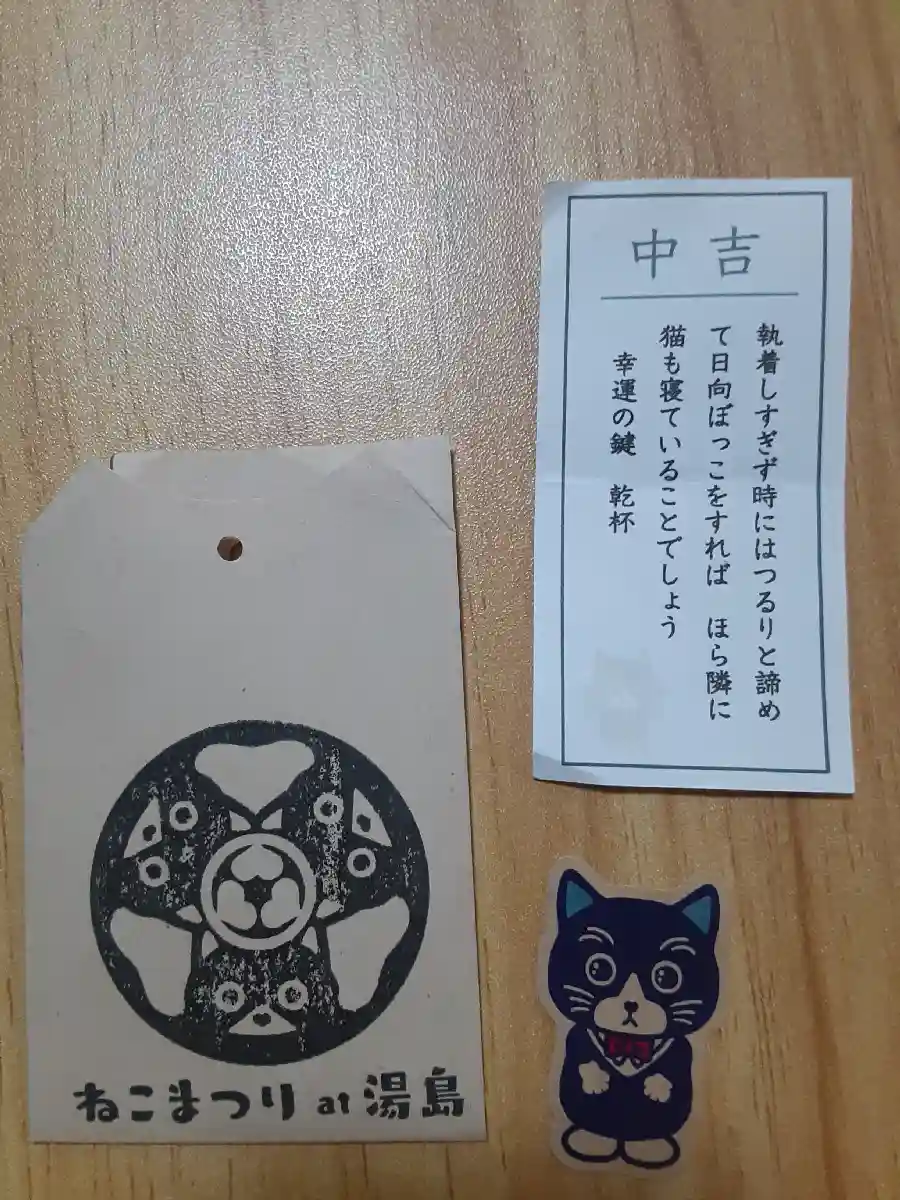 中吉
執着しすぎず時にはつるりと諦め
て日向ぼっこをすれば ほら隣に
猫も寝ていることでしょう
幸運の鍵 乾杯
ねこまつり at 湯島